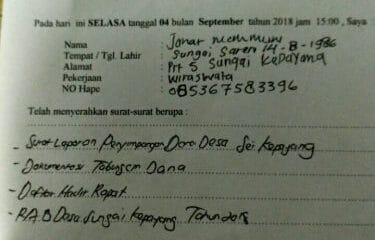 Pada hari ini SELASA tanggal 04 bulan September tahun 2018 jam 15:00, Saya :
Nama : Jonar
Tempat / Tgl. Lahir : Sungai Saren 14-8-1986
Alamat : Prt 5 Sungai Kepayang
Pekerjaan : wiraswata
NO Hape : 085367583396
Telah menyerahkan surat-surat berupa :
- Surat Laporan Penyimpangan Dana Desa Sei Kepayang
- Dokumentasi Dana
- Daftar Hadir Rapat
- RAB Desa Sungai Kepayang Tahun